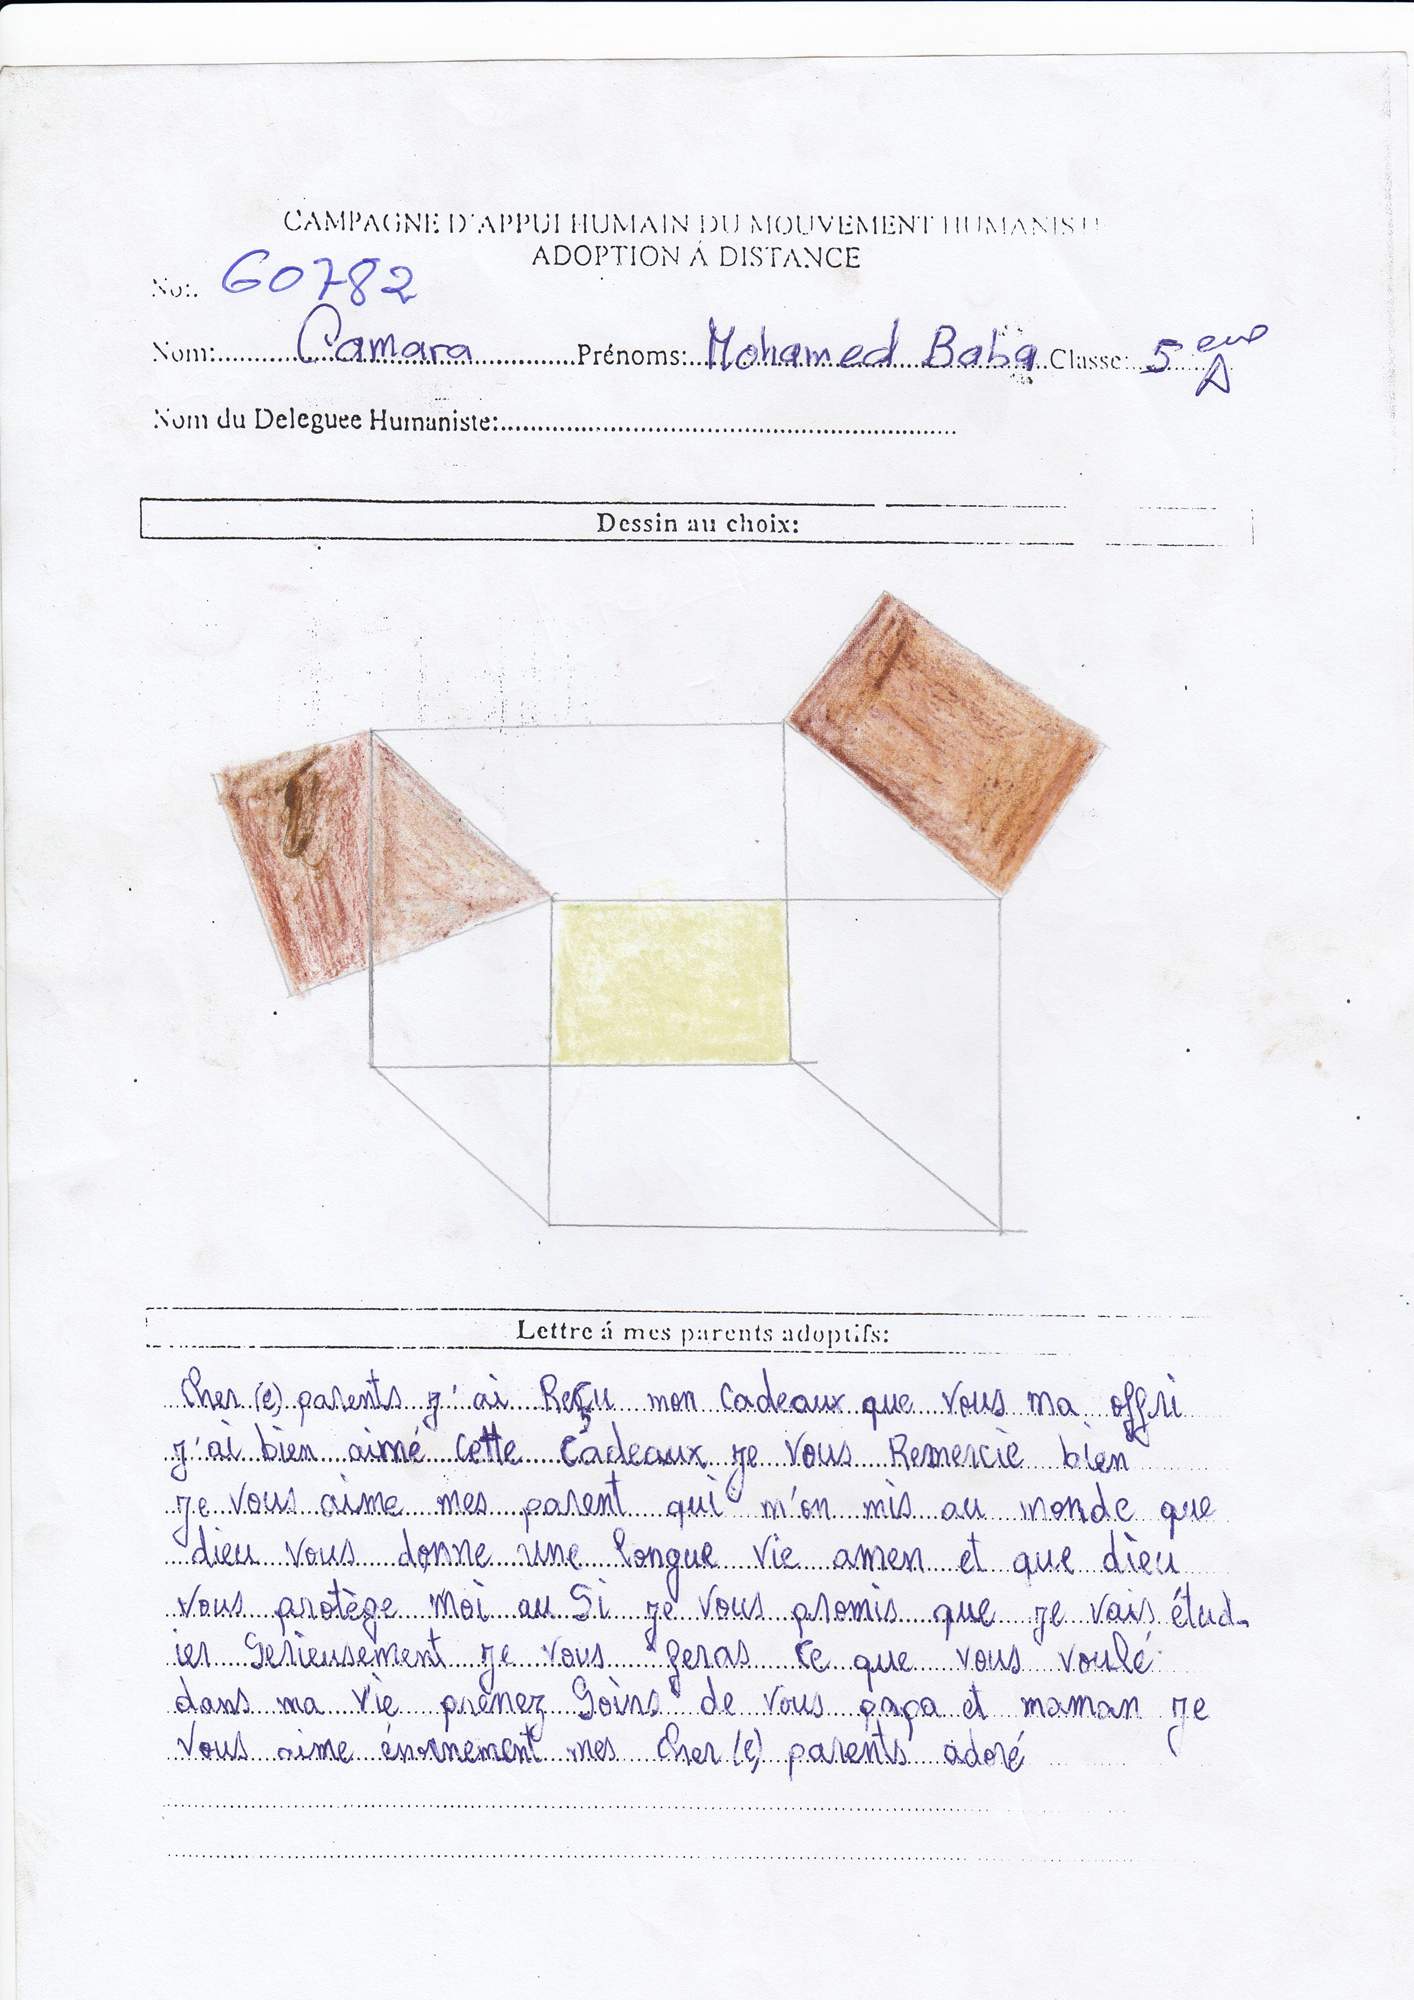 CAMPAGNE D'APPUI HUMAIN DU MOUVEMENT HUMANISTE
ADOPTION Á DISTANCE
No:. 60782
Nom: Camara Prénoms: Mohamed Baba Classe: 5 eme A
Nom du Deleguee Humaniste:
Dessin au choix:
Lettre á mes parents adoptifs:
Cher (e) parents j'ai Reçu mon Cadeaux que vous ma offri
j'ai bien aimé Cette Cadeaux je vous Remercie bien
je vous aime mes parent qui m'on mis au monde que
dieu vous donne une longue vie amen et que dieu
vous protège Moi au Si je vous promis que je vais étud-
ier Serieusement je vous feras ce que vous voulé
dans ma vie prenez Soins de vous papa et maman je
vous aime énormement mes Cher (e) parents adoré